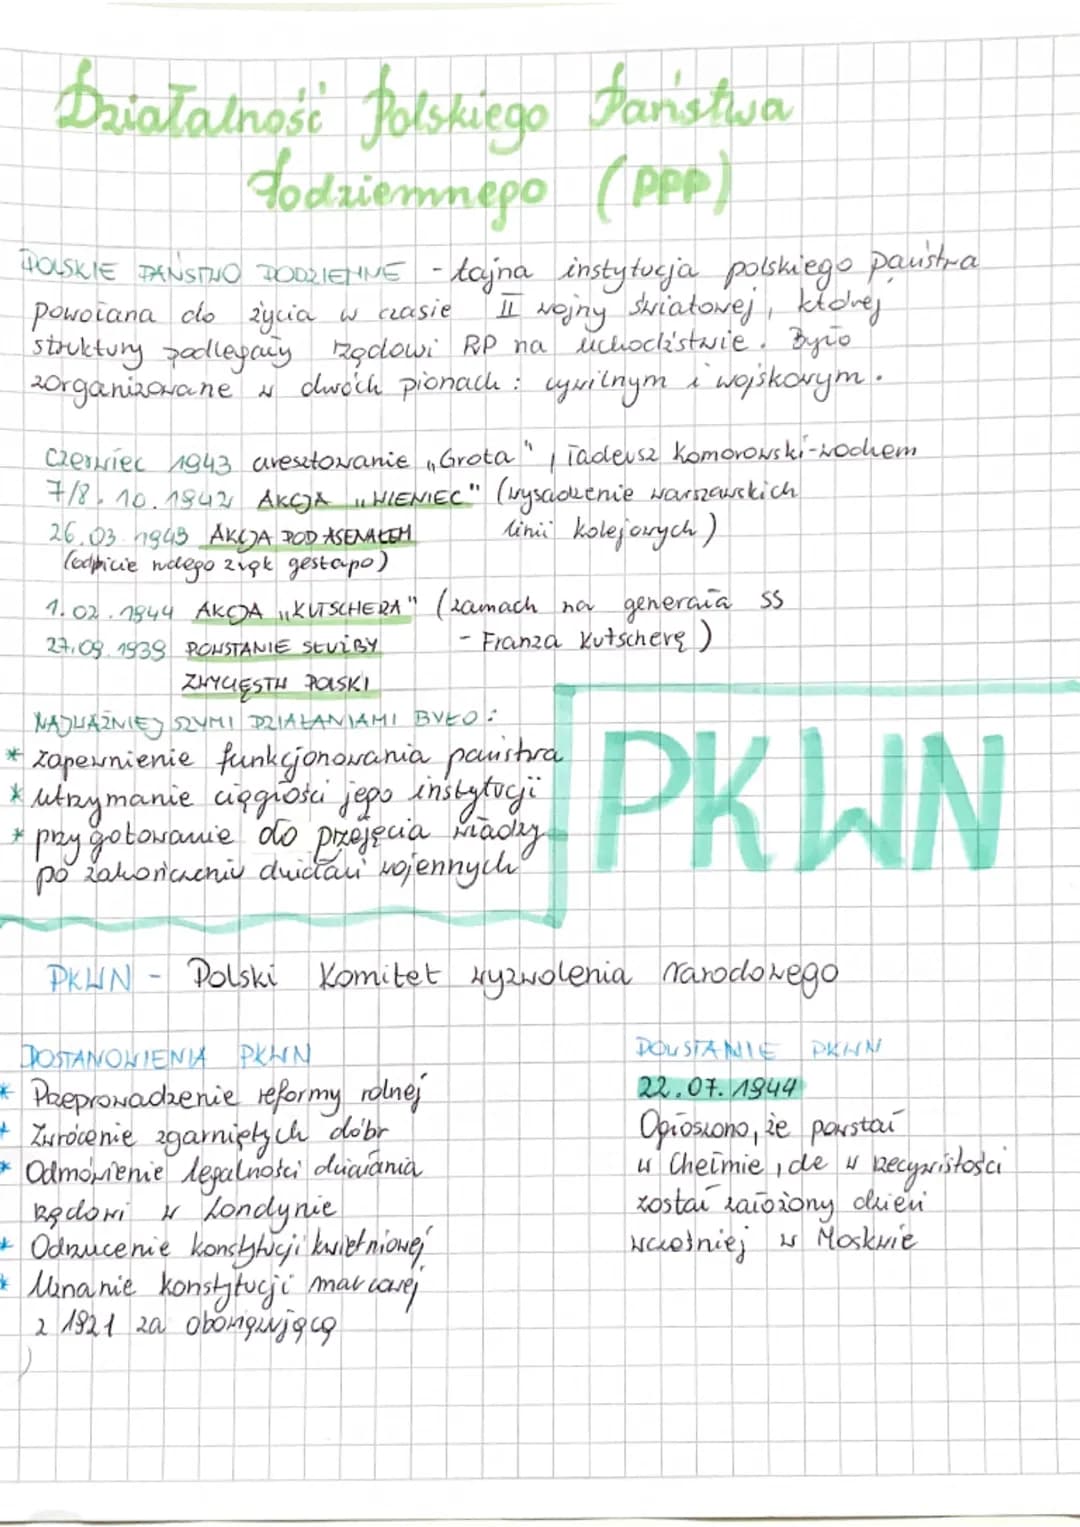 Działalność Polskiego Państwa
Podziemnego (PPP)
POLSKIE PAŃSTWO PODZIEMNE - tajna instytucja polskiego państwa
powołana do życia w czasie II wojny światowej, której
struktury podlegały rządowi RP na uchodźstwie. Było
zorganizowane w dwóch pionach: cywilnym i wojskowym.
Czerwiec 1943 aresztowanie „Grota", Tadeusz Komorowski-wodzem
7/8.10.1942 AKCJA „WIENIEC" (wysadzenie warszawskich
linii kolejowych)
26.03 1943 AKCJA POD ASENAŁEM
(odbicie rudego z rąk gestapo)
1.02.1944 AKCJA „KUTSCHERA" (zamach na generała SS
- Franza Kutscherę)
27.09.1939 POWSTANIE SŁUŻBY
ZWYCIĘSTW POLSKI
NAJWAŻNIEJSZYMI DZIAŁANIAMI BYŁO:
* zapewnienie funkcjonowania państwa
* utrzymanie ciągłości jego instytucji
* przygotowanie do przejęcia władzy
po zakończeniu działań wojennych
PKWN
PKWN - Polski Komitet wyzwolenia narodowego
POSTANOWIENIA PKWN
* Przeprowadzenie reformy rolnej
* Zwrócenie zgarniętych dóbr
* Odmówienie legalności działania
rządowi w Londynie
* Odrzucenie konstytucji kwietniowej
* Uznanie konstytucji marcowej
z 1921 za obowiązującą
POWSTANIE PKWN
22.07.1944
Ogłoszono, że powstał
w Chełmie, ale w rzeczywistości
został założony dzień
wcześniej w Moskwie